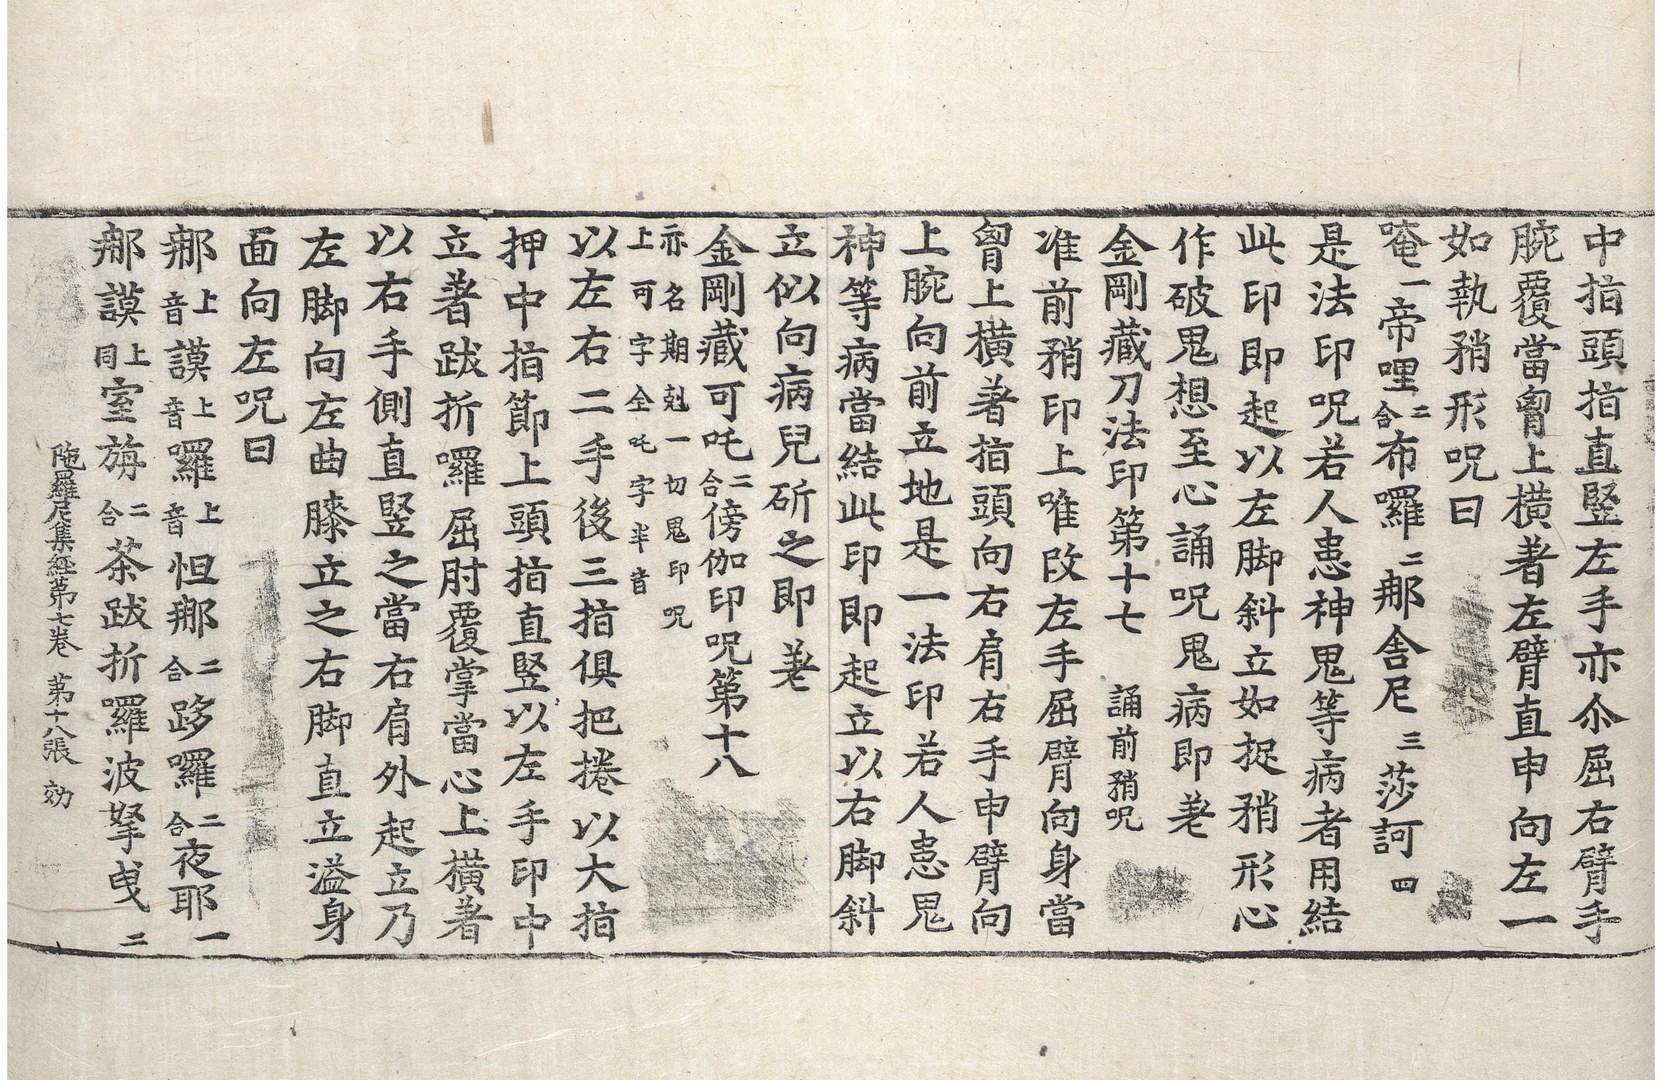 中指頭指直竪左手亦尒屈右臂手
腕覆當𦙄上橫著左臂直申向左一
如執矟形呪曰
唵一帝哩二合布囉二那舍尼三莎訶四
是法印呪若人患神鬼等病者用結
此印即起以左脚斜立如捉矟形心
作破鬼想至心誦呪鬼病即差
金剛藏刀法印第十七 誦前矟呪
准前矟印上唯改左手屈臂向身當
𦙄上橫著指頭向右肩右手申臂向
上腕向前立地是一法印若人患鬼
神等病當結此印即起立以右脚斜
立似向病兒斫之即差
金剛藏可吒二合傍伽印呪第十八
亦名期剋一切鬼印呪
上可字全吒字半音
以左右二手後三指俱把捲以大指
押中指節上頭指直竪以左手印中
立著跋折囉屈肘覆掌當心上橫著
以右手側直竪之當右肩外起立乃
左脚向左曲膝立之右脚直立溢身
面向左呪曰
那上音謨上音囉上音怛那二合跢囉二合夜耶一
那謨上同室旃二合茶跋折囉波拏曳二
陁羅尼集經第七卷 第十八張 効